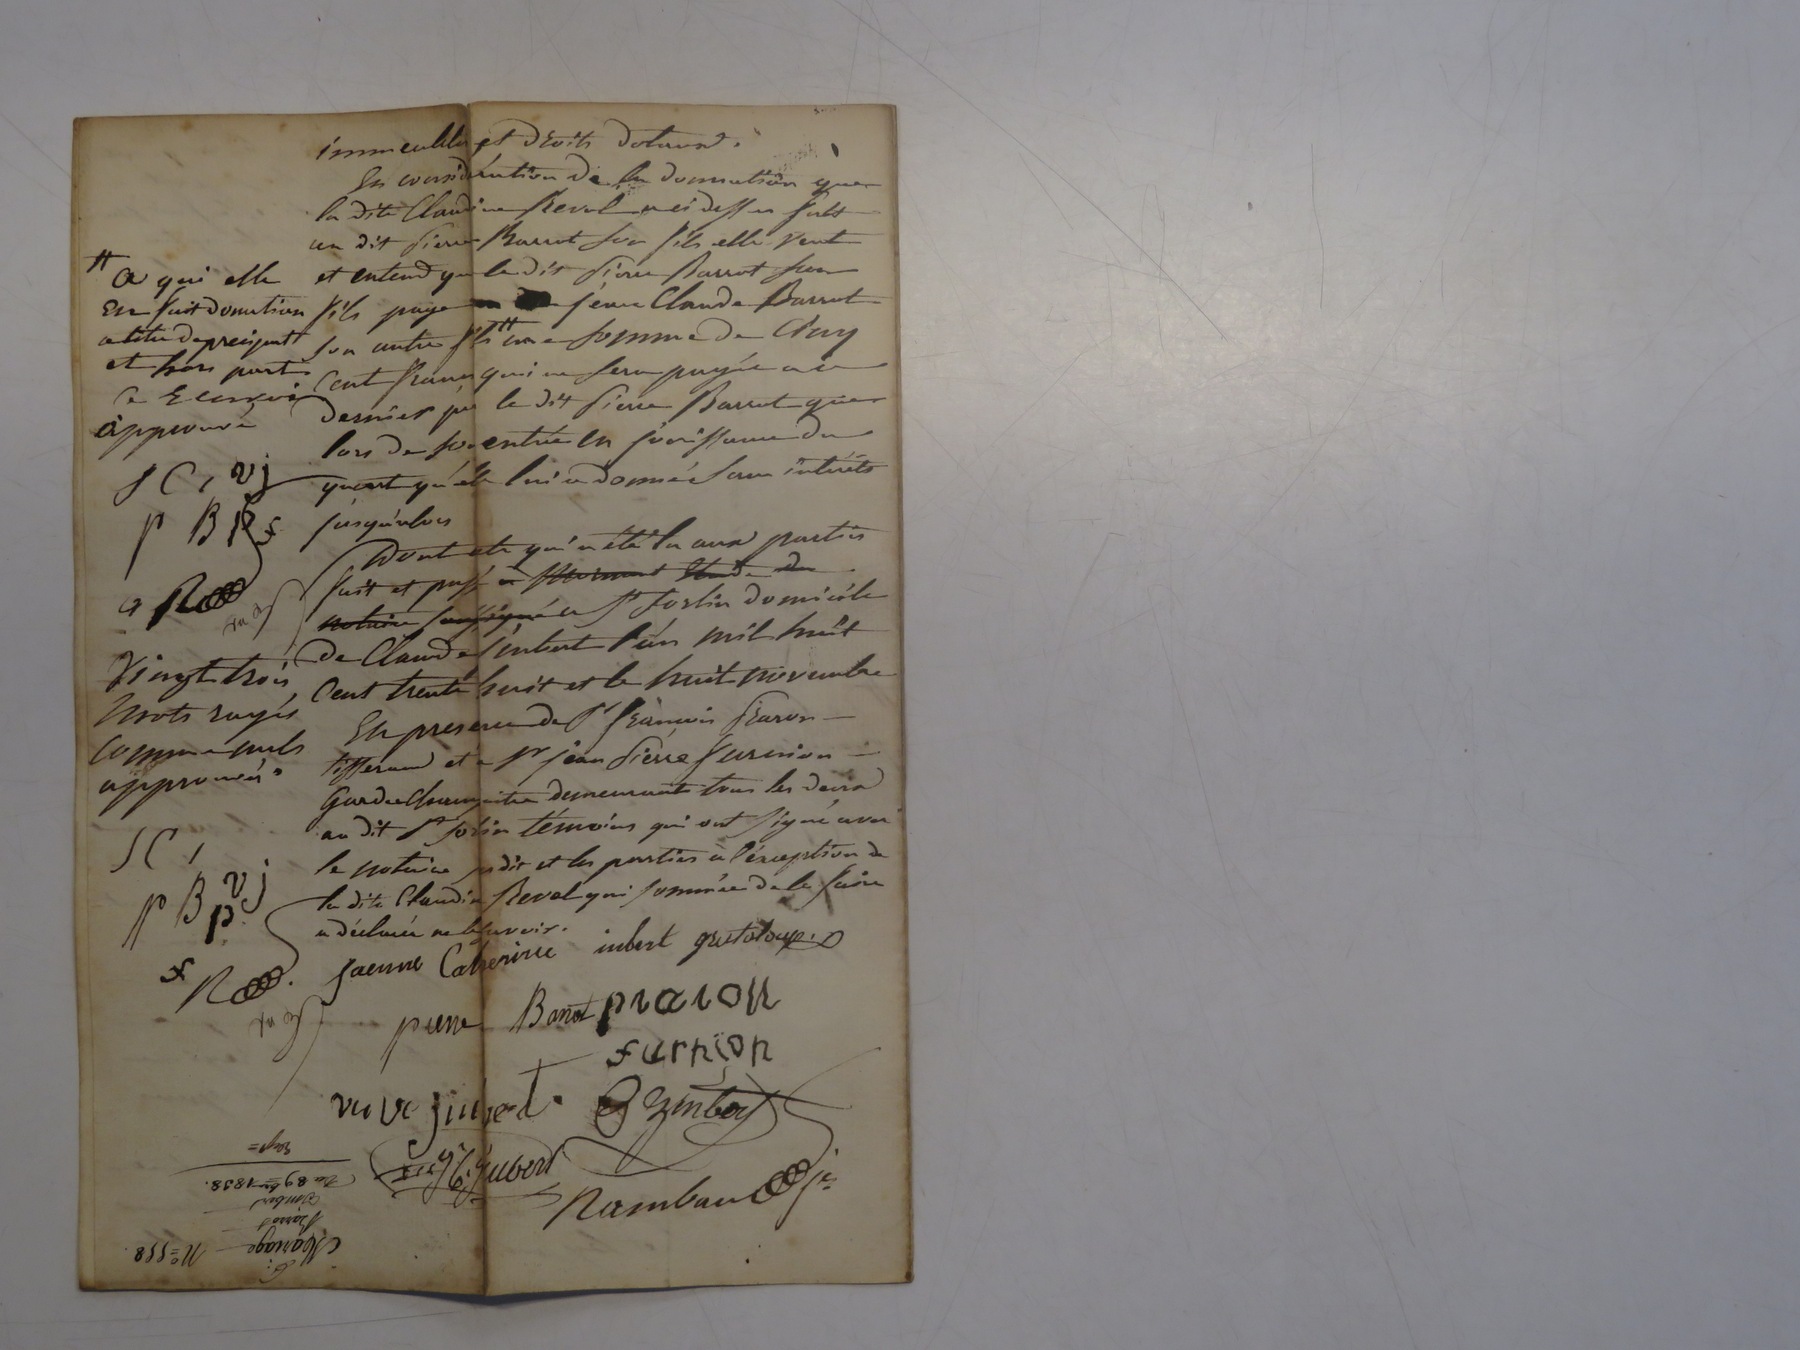 immeubles et droits dotaux.
En considération de la donnation que
la dite Claudine Revel a ci dessus fait
au dit Pierre Barrot son fils elle veut
et entend que le dit Pierre Barrot son
fils paye a jean Claude Barrot
son autre fils # une somme de Cinq
Cent francs qui ne sera payée a ce
dernier par le dit Pierre Barrot que
lors de son entrée en jouissance du
quart qu'elle lui a donné sans intérêts
jusqu'alors
Dont acte qu'a été lu aux parties
fait et passé a
notaire soussigné a St Joslin domicile
de Claude imbert l'an mil huit
Cent trente huit et le huit novembre
En presence de Sr françois Piaron
tisserand et de Sr jean Pierre furnion
Garde Champêtre demeurants tous les deux
au dit St Joslin témoins qui ont signé avec
le notaire sudit et les parties à l'éxception de
la dite Claudine Revel qui sommée de le faire
a déclarée ne le savoir.
# a qui elle
En fait donnation
a titre de preciput
et hors part
Ce Renvoi
approuvé
J C, vj
P B P f
Vingt trois
Mots rayés
Comme nuls
approuvés
J C,
P B vj
P
f R
jaenne Catherine imbert grutoloup
pierre Barrot piaron
furnion
veuve jinbert imbert
imbert
Rambaud jne
C:
Mariage N° 558
Barrot
Imbert
Du 8 9bre 1838.
Exp=